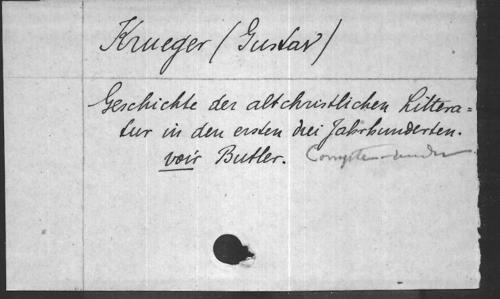 Krueger (Gustav)
Geschichte der altchristlichen Littera=
tur in den ersten drei Jahrhunderten.
voir Butler. Compte-rendu